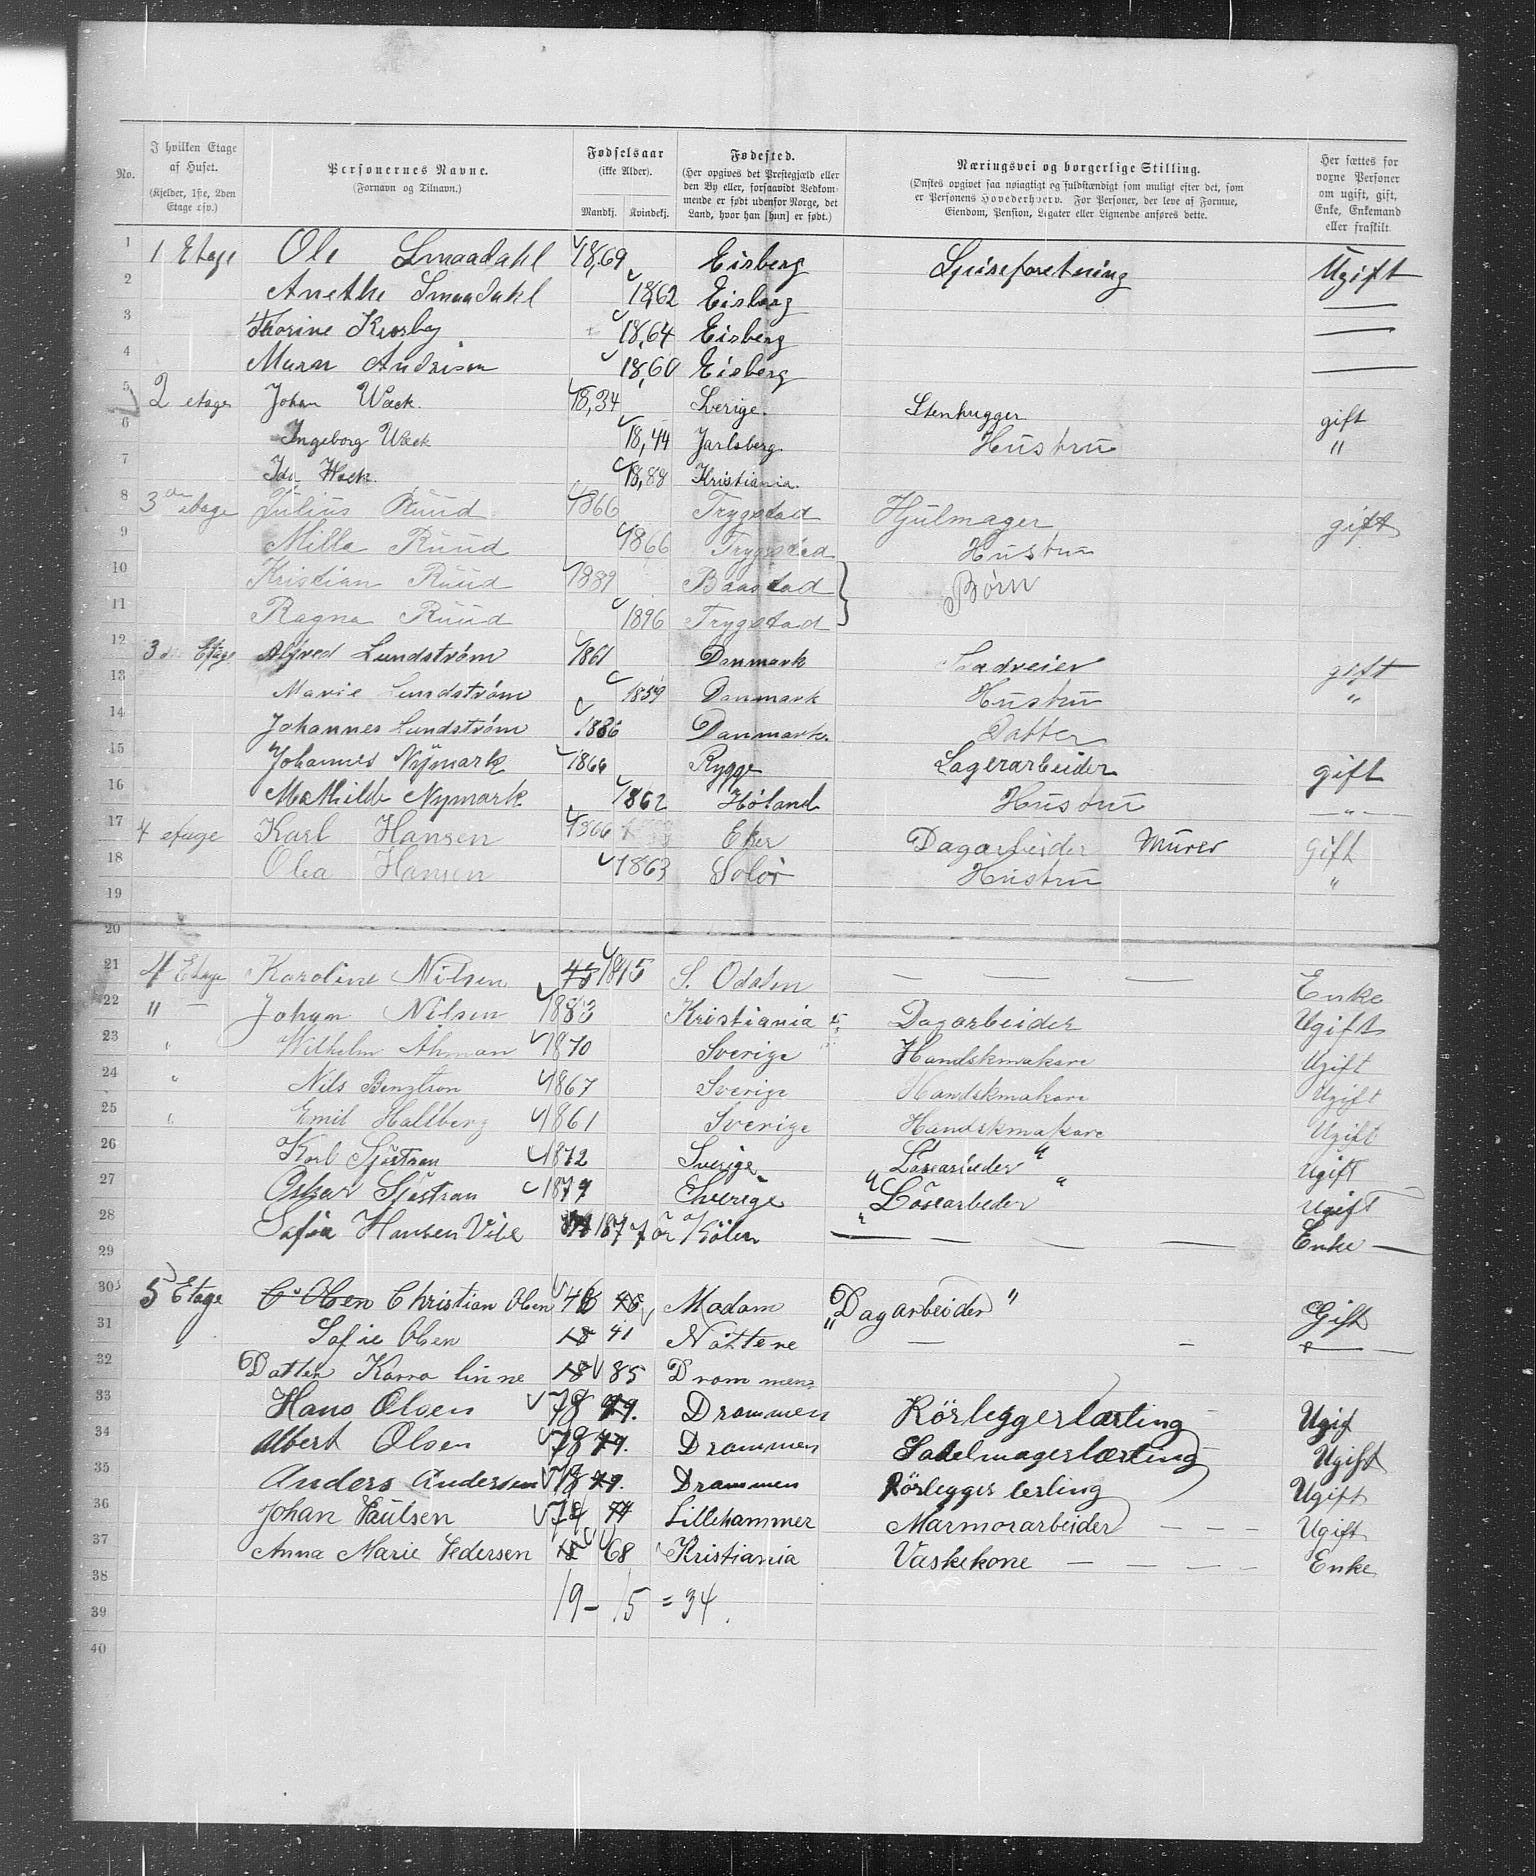 No.
I hvilken Etage af Huset. (Kjelder, 1ste, 2den Etage osv.)
Personernes Navne. (Fornavn og Tilnavn.)
Fødselsaar (ikke Alder). Mandkj. Kvindekj.
Fødested. (Her opgives det Prestegjæld eller den By eller, forsaavidt Vedkommende er født udenfor Norge, det Land, hvor han [hun] er født.)
Næringsvei og borgerlige Stilling. (Ønskes opgivet saa nøiagtigt og fuldstændigt som muligt efter det, som er Personens Hovederhverv. For Personer, der leve af Formue, Eiendom, Pension, Legater eller Lignende anføres dette.
Her sættes for voxne Personer om ugift, gift, Enke, Enkemand eller fraskilt
1 1 Etage Ole Smaadahl 1869 Eisberg Spiseforetning Ugift
2 Anethe Smaadahl 1862 Eisberg —
3 Thorine 1864 Eisberg —
4 Andrisen 1860 Eisberg —
5 2 etage Johan Wæk. 1834 Sverige. Stenhugger gift
6 Ingeborg Wæk 1844 Jarlsberg. Hustru "
7 Ida Hæk. 1888 Kristiania.
8 3die etage Julius Ruud 1866 Trygstad Hjulmager gift
9 Milla Ruud 1866 Trygstad Hustru
10 Kristian Ruud 1889 Baastad } Børn
11 Ragna Ruud 1896 Trygstad
12 3 Etage Alfred Lundstrøm 1861 Danmark gift
13 Marie Lundstrøm 1859 Danmark Hustru "
14 Johannes Lundstrøm 1886 Danmark. Datter
15 Johannes Nÿmark 1866 Rygge Lagerarbeider gift
16 Mathilde Nymark 1862 Høland Hustru — " —
17 4 etage Karl Hansen 1866 Eker Dagarbeider Murer gift
18 Olea Hansen 1863 Solør Hustru "
19
20
21 4 Etage Karoline Nilsen 45 1845 S. Odalen — — — Enke
22 " — Johan Nilsen 1883 Kristiania Dagarbeider Ugift
23 " Wilhelm Åhman 1870 Sverige Handskmakare Ugift
24 " Nils Bengtson 1867 Sverige Handskmakare Ugift
25 " Emil Hallberg 1861 Sverige Handskmakare Ugift
26 Karl Sjøstran 1872 Sverige " Løsearbeder " Ugift
27 Oskar Sjøstran 1877 Sverige " Løsearbeder " Ugift
28 Sofia Hansen Vibe 1877 — — — — Enke —
29
30 5 Etage C Olsen Christian Olsen 46 46 Modam " Dagarbeider " Gift
31 Sofie Olsen 18 41 Nøtterø — - —
32 Datter Karro linne 18 85 Drammen
33 Hans Olsen 78 79. Drammen Rörleggerlærling Ugif
34 Albert Olsen 78 Drammen Sadelmagerlærling Ugift
35 Anders Andersen 78 79. Drammen Rörlegger lerling Ugift
36 Johan Paulsen 74 74 Lillehammer Marmorarbeider — - - Ugift
37 Anna Marie Pedersen 18 68 Kristiania Vaskekone — — - - Enke
38
39 19 - 15 = 34.
40